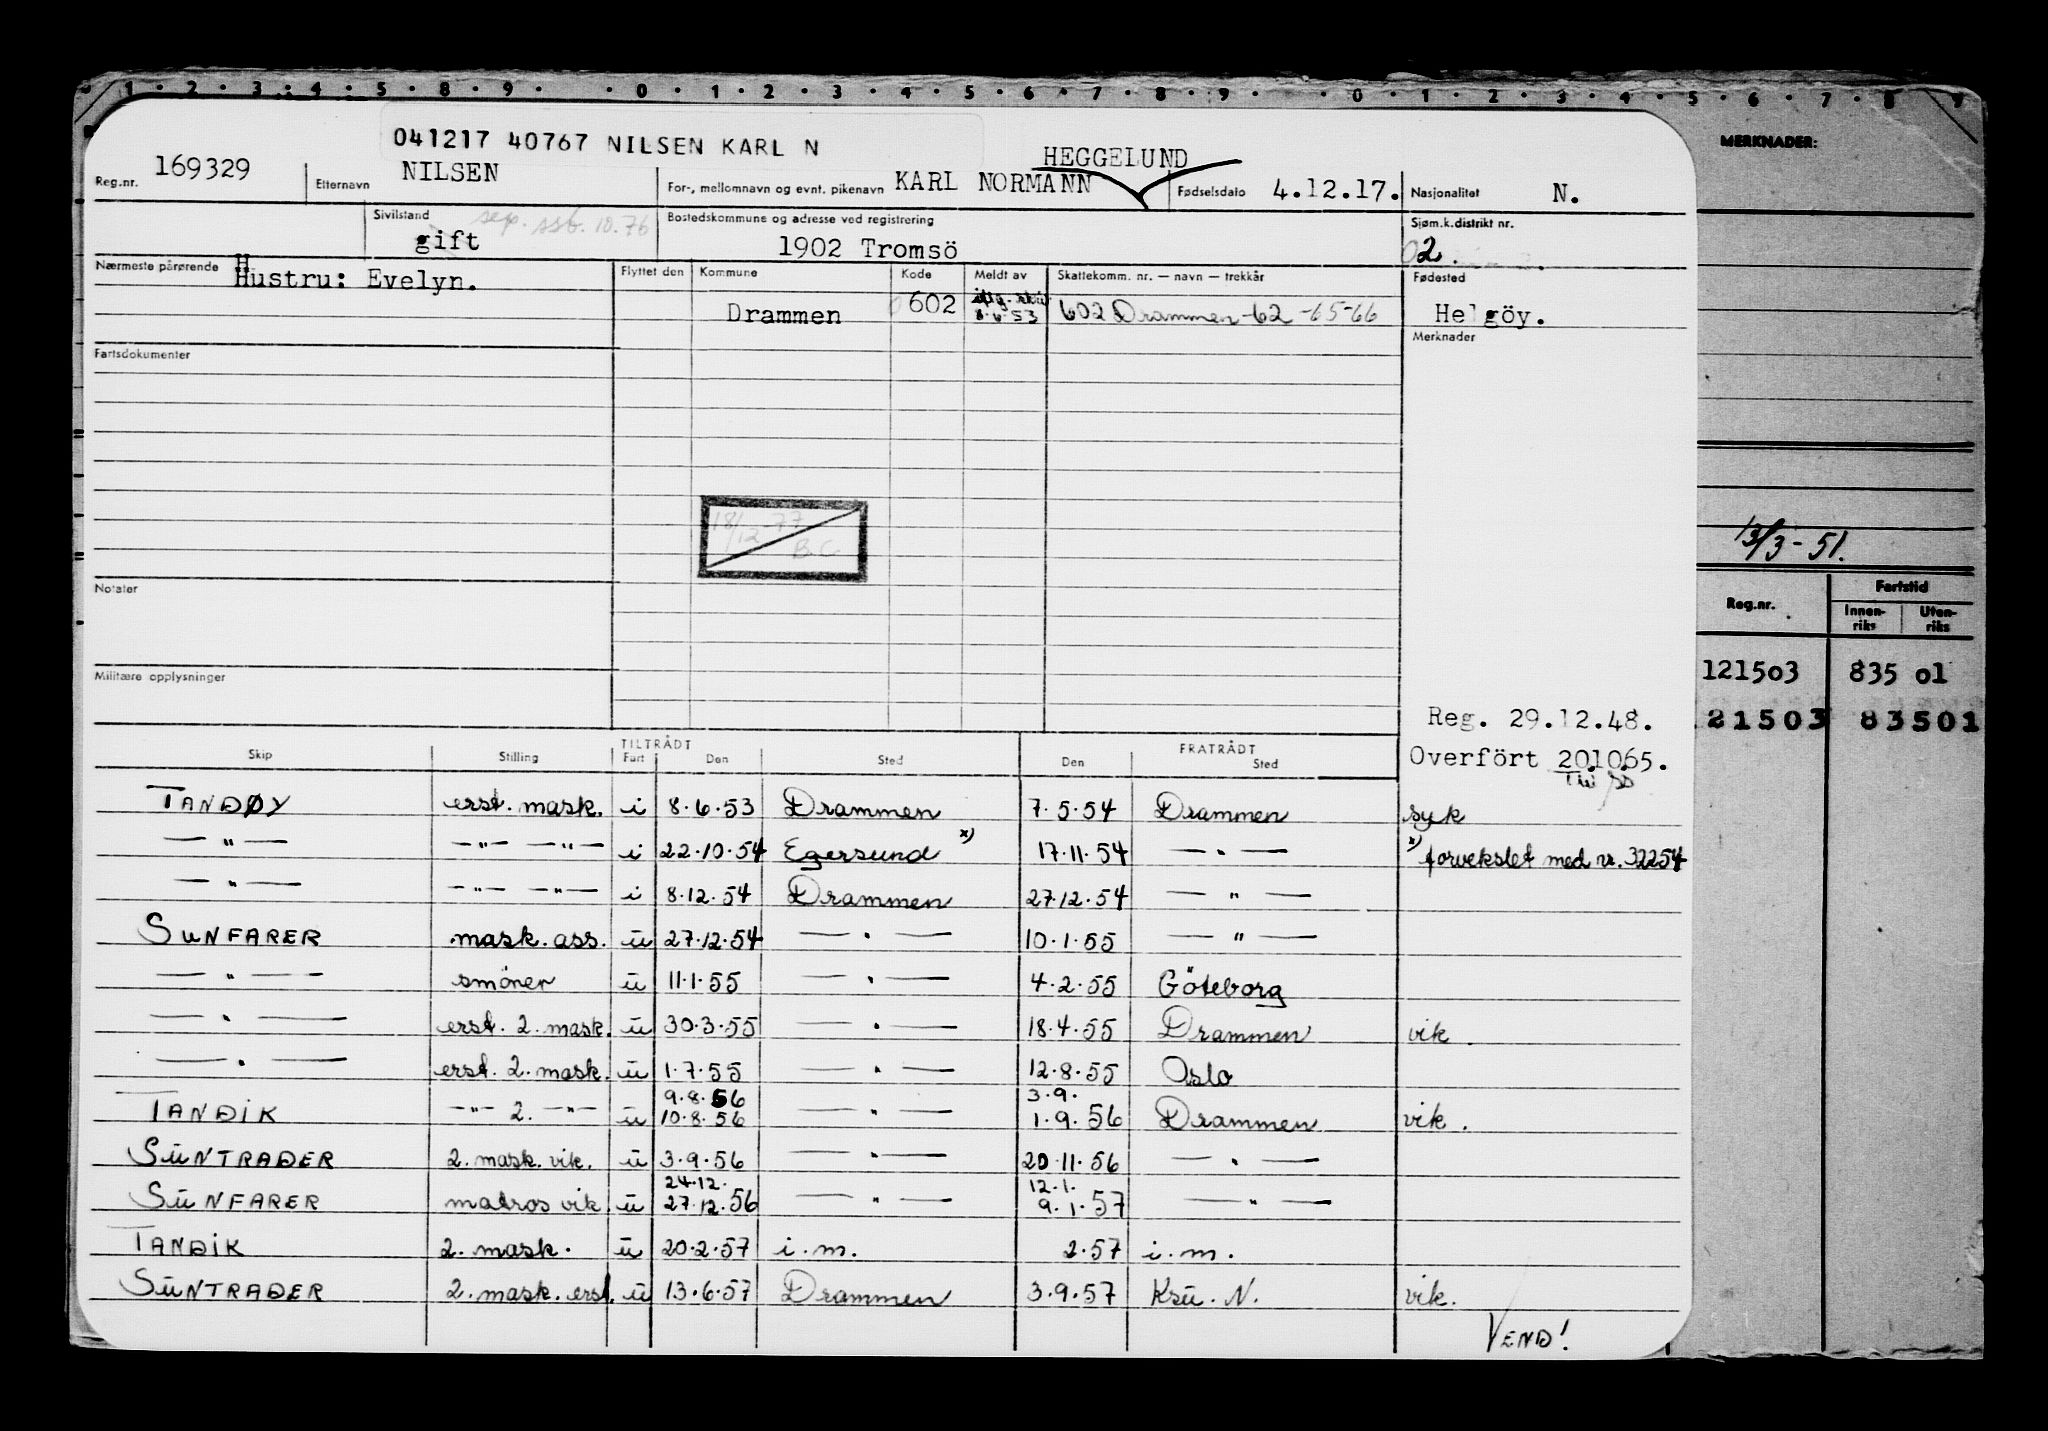 1 · 2 · 3 · 4 · 5 · 8 · 9 · · 0 · 1 · 2 · 3 · 4 · 5 · 6 · 7 · 8 · 9 · · 0 · 1 · 2 · 3 · 4 · 5 · 6 · 7 · 8 · 9
041217 40767 NILSEN KARL N
MERKNADER:
HEGGELUND
Reg.nr. 169329 Etternavn NILSEN For-, mellomnavn og evnt. pikenavn KARL NORMANN Fødselsdato 4.12.17. Nasjonalitet N.
Sivilstand sep. 10.76 Bostedskommune og adresse ved registrering Sjøm.k.distrikt nr.
gift 1902 Tromsö 02.
Nærmeste pårørende Hustru: Evelyn. Flyttet den Kommune Kode Meldt av Skattekomm. nr. — navn — trekkår Fødested
Drammen 0602 8.6.53 602 Drammen-62-65-66 Helgöy.
Fartsdokumenter Merknader
18/12-77 B.C.
13/3-51.
Notater
Reg.nr. Fartstid
Innenriks Utenriks
Militære opplysninger
121503 835 01
Reg. 29.12.48. 21503 83501
Overfört 201065.
TILTRÅDT FRATRÅDT
Skip Stilling Fart Den Sted Den Sted
TANDØY erst. mask. i 8.6.53 Drammen 7.5.54 Drammen syk
— " — —"— —"— i 22.10.54 Egersund x) 17.11.54 — " — x) forvekslet med nr. 32254
— " — —"— —"— i 8.12.54 Drammen 27.12.54 — " —
SUNFARER mask. ass. u 27.12.54 — " — 10.1.55 — " —
— " — smörer u 11.1.55 — " — 4.2.55 Göteborg
— " — erst. 2. mask. u 30.3.55 — " — 18.4.55 Drammen vik.
— " — erst. 2. mask. u 1.7.55 — " — 12.8.55 Oslo
9.8.56 3.9.
TANDIK —"— 2. —"— u 10.8.56 — " — 1.9.56 Drammen vik.
SUNTRADER 2. mask. vik. u 3.9.56 — " — 20.11.56 — " —
24.12. 12.1.
SUNFARER matros vik u 27.12.56 — " — 9.1.57 — " —
TANDIK 2. mask. u 20.2.57 i.m. 2.57 i.m.
SUNTRADER 2. mask. erst. u 13.6.57 Drammen 3.9.57 Krsu. N. vik.
VEND!